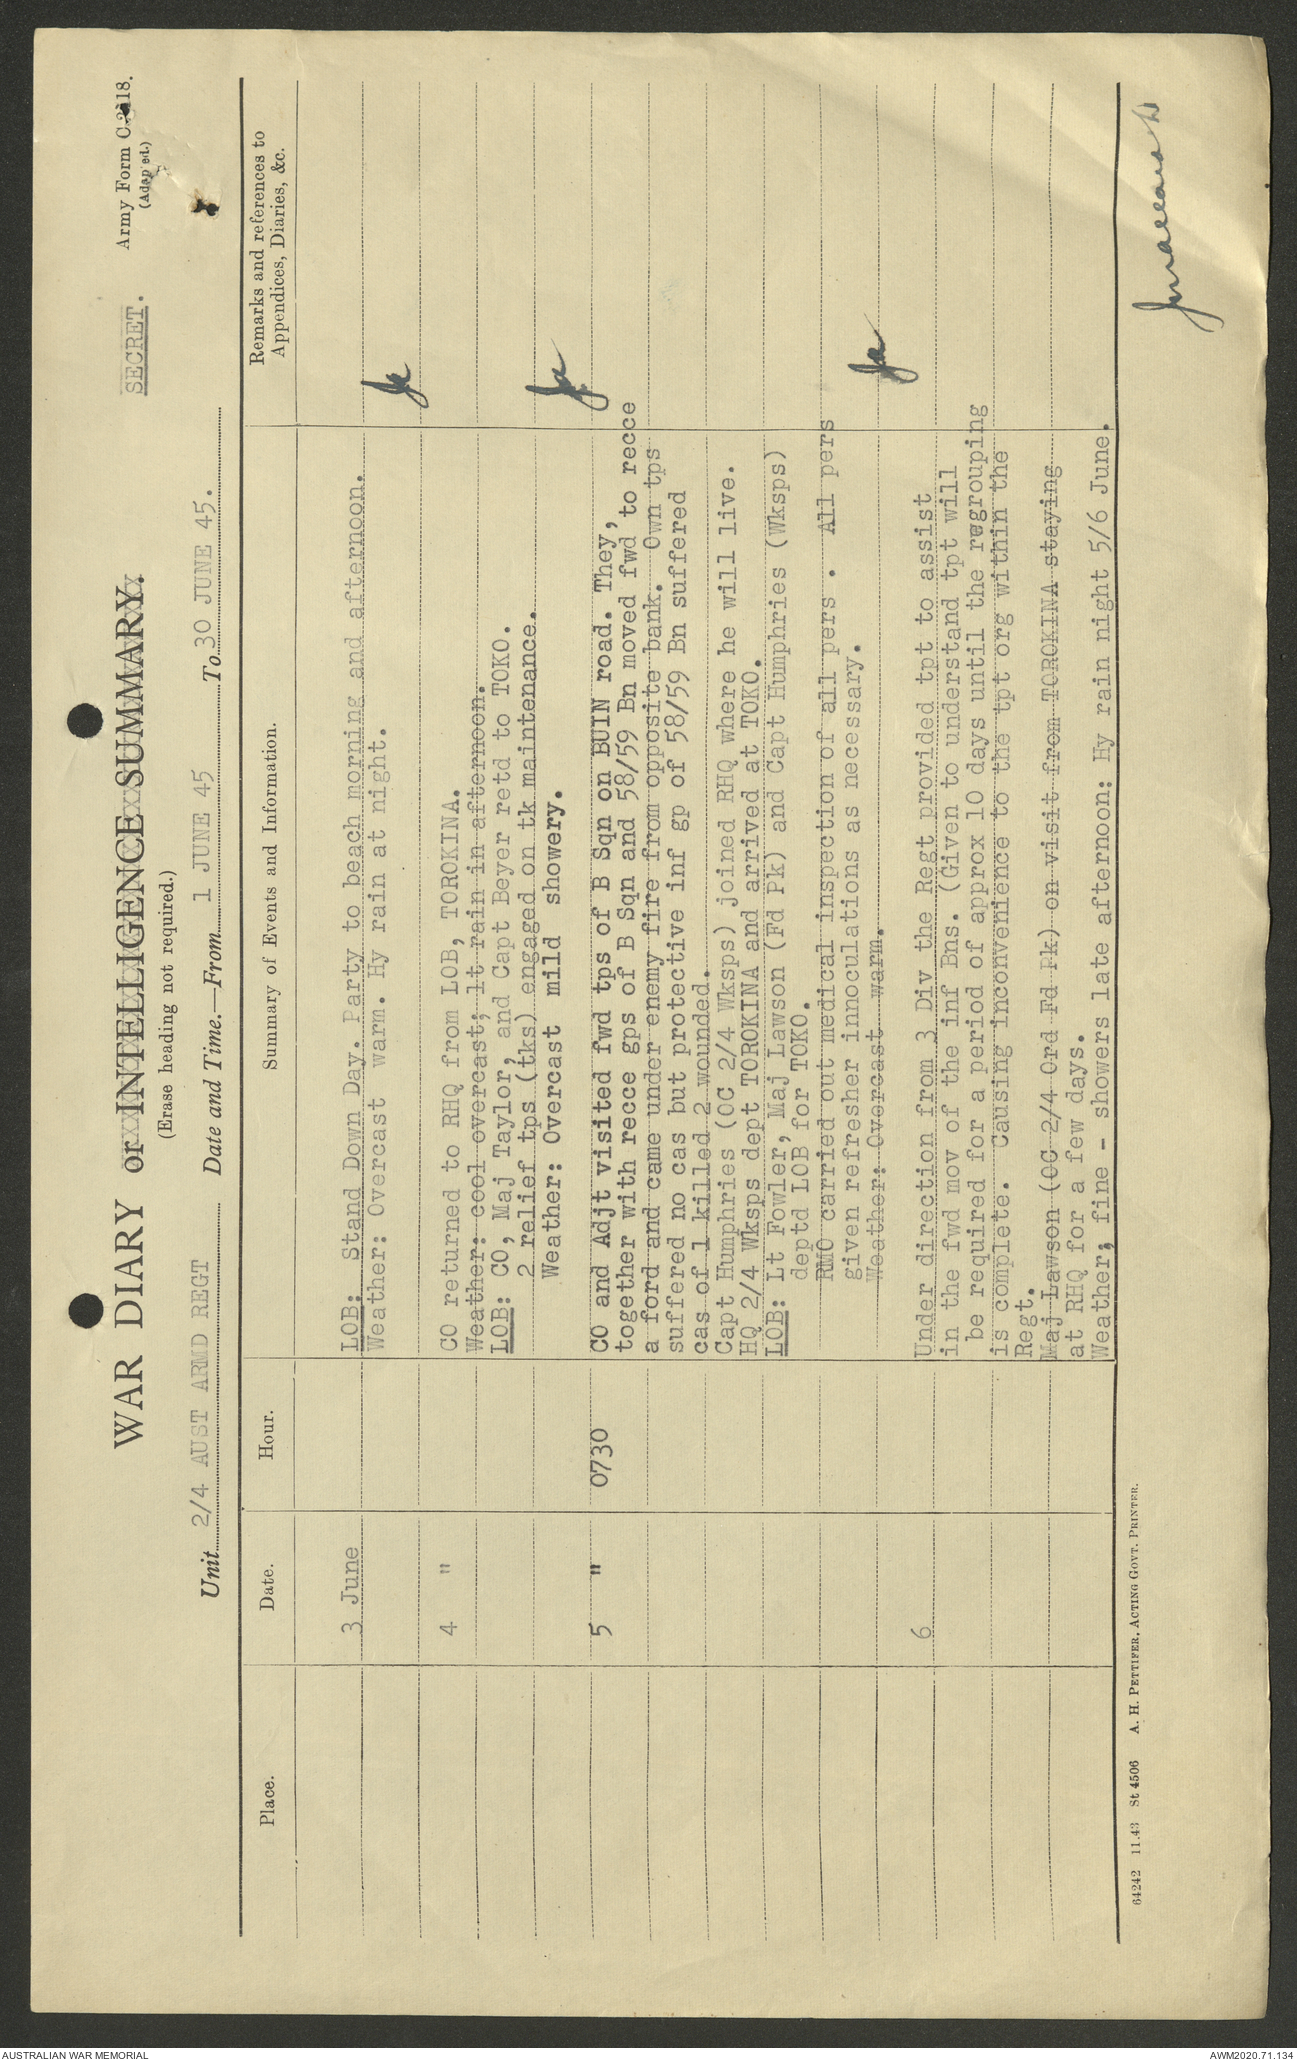 Army Form C.2118.
(Adapted.)
SECRET.
WAR DIARY or INTELLIGENCE SUMMARY.
(Erase heading not required.)
Unit 2/4 AUST ARMD REGT Date and Time.—From 1 JUNE 45 To 30 JUNE 45.
Place. Date. Hour. Summary of Events and Information. Remarks and references to
Appendices, Diaries, &c.
3 June LOB: Stand Down Day. Party to beach morning and afternoon.
Weather: Overcast warm. Hy rain at night.
4 " CO returned to RHQ from LOB, TOROKINA.
Weather: cool overcast; lt rain in afternoon.
LOB: CO, Maj Taylor, and Capt Beyer retd to TOKO.
2 relief tps (tks) engaged on tk maintenance.
Weather: Overcast mild showery.
5 " 0730 CO and Adjt visited fwd tps of B Sqn on BUIN road. They,
together with recce gps of B Sqn and 58/59 Bn moved fwd to recce
a ford and came under enemy fire from opposite bank. Own tps
suffered no cas but protective inf gp of 58/59 Bn suffered
cas of 1 killed 2 wounded.
Capt Humphries (OC 2/4 Wksps) joined RHQ where he will live.
HQ 2/4 Wksps dept TOROKINA and arrived at TOKO.
LOB: Lt Fowler, Maj Lawson (Fd Pk) and Capt Humphries (Wksps)
deptd LOB for TOKO.
RMO carried out medical inspection of all pers . All pers
given refresher innoculations as necessary.
Weather: Overcast warm.
6 Under direction from 3 Div the Regt provided tpt to assist
in the fwd mov of the inf Bns. (Given to understand tpt will
be required for a period of approx 10 days until the regrouping
is complete. Causing inconvenience to the tpt org within the
Regt.
Maj Lawson (OC 2/4 Ord Fd Pk) on visit from TOROKINA staying
at RHQ for a few days.
Weather; fine - showers late afternoon: Hy rain night 5/6 June.
64242 11.43 St 4506 A. H. PETTIFER, ACTING GOVT. PRINTER.
AUSTRALIAN WAR MEMORIAL
AWM2020.71.134